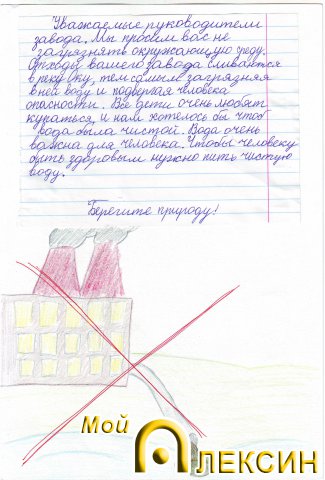 Уважаемые руководители
завода. Мы просим вас не
загрязнять окружающую среду.
Отходы вашего завода сливаются
в реку Оку, тем самым загрязняя
в ней воду и подвергая человека
опасности. Все дети очень любят
купаться, и нам хотелось бы чтоб
вода была чистой. Вода очень
важна для человека. Чтобы человеку
быть здоровым нужно пить чистую
воду.
Берегите природу!
Мой Алексин